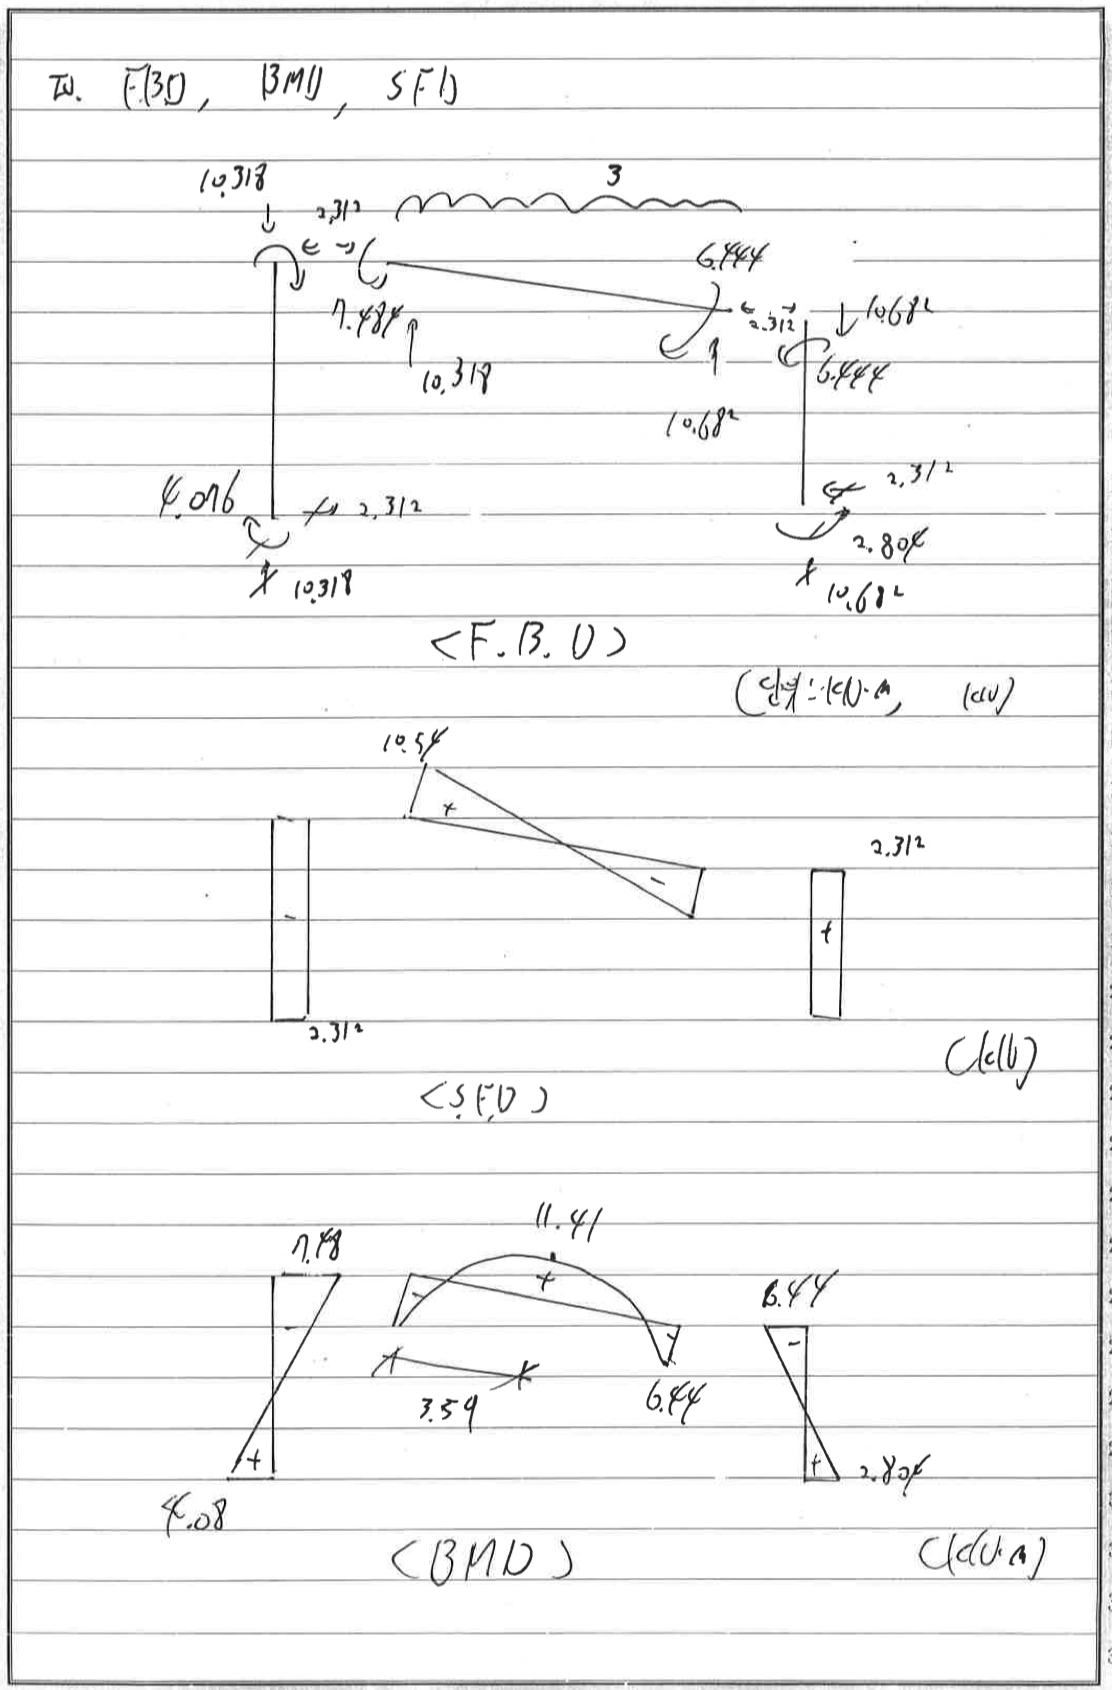 IV. F.B.D, BMD, SFD
10.318
3
2.312
6.444
7.484
2.312
10.682
10.318
6.444
10.682
4.076
2.312
2.312
2.804
10.318
10.682
<F.B.D>
(단위 : kN·m, kN)
10.54
+
2.312
-
-
+
2.312
(kN)
<S.F.D>
11.41
7.48
+
6.44
-
-
-
-
3.59
6.44
+
+
2.804
4.08
<BMD>
(kN·m)